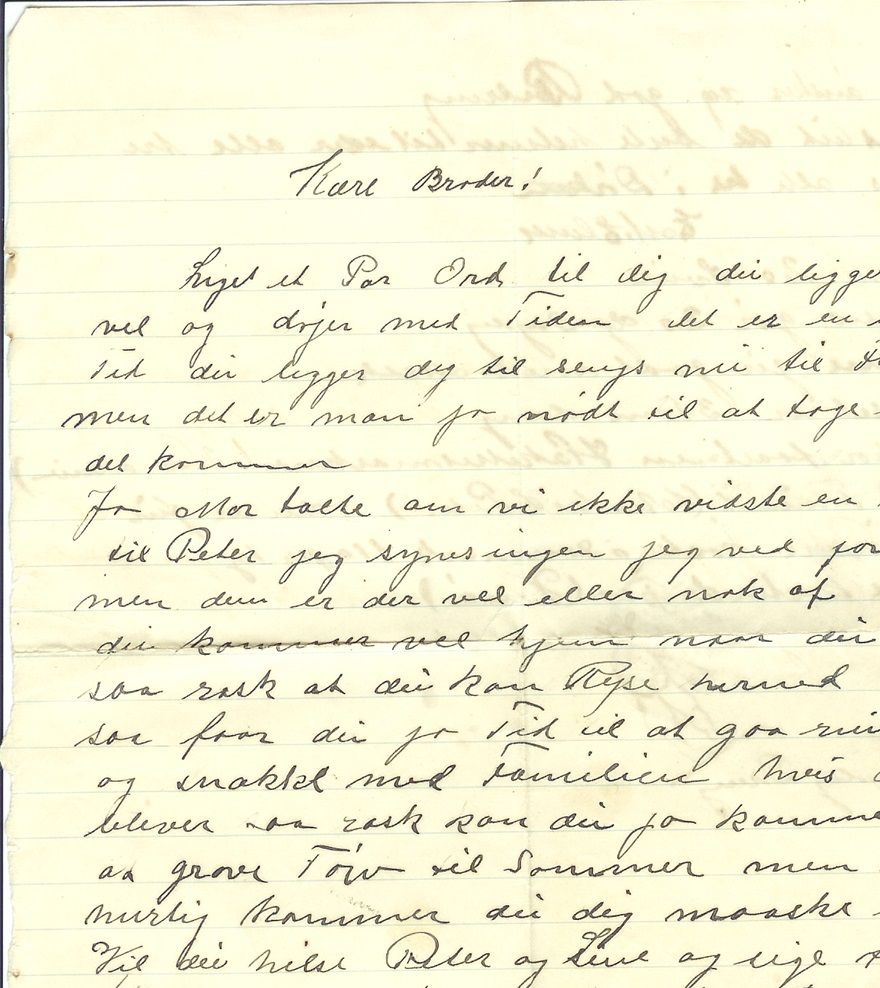 Kære Broder!
Luget et Par Ord til dig du ligge
vel og dojer med Tiden det er en
Tid du ligger dig til sengs nu til
men det er man jo nødt til at tage
det kommer
Ja Mor talte om vi ikke vidste en
til Peter jeg synes ingen jeg ved for
men dem er der vel eller nok af
du kommer vel hjem naar du
saa rask at du kan Rejse herned
saa faar du jo Tid til at gaa run
og snakke med Familien hvis
bliver saa rask kan du jo komme
aa grave Tørv til Sommer men
hurtig kommer du dig maaske
Vil du hilse Peter og Line og sige